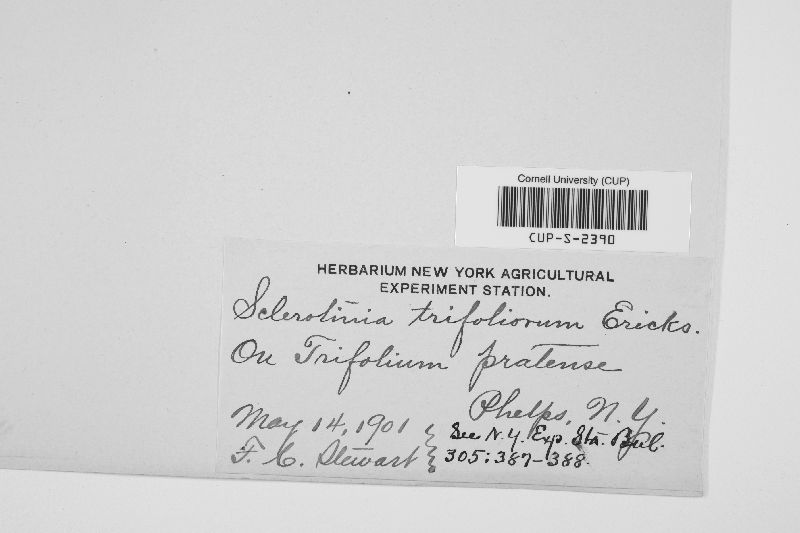 Cornell University (CUP)
CUP-S-2390
HERBARIUM NEW YORK AGRICULTURAL
EXPERIMENT STATION.
Sclerotinia trifoliorum Ericks.
On Trifolium pratense
Phelps, N. Y.
May 14, 1901
F. C. Stewart
See N.Y. Exp. Sta. Bul.
305:387-388.